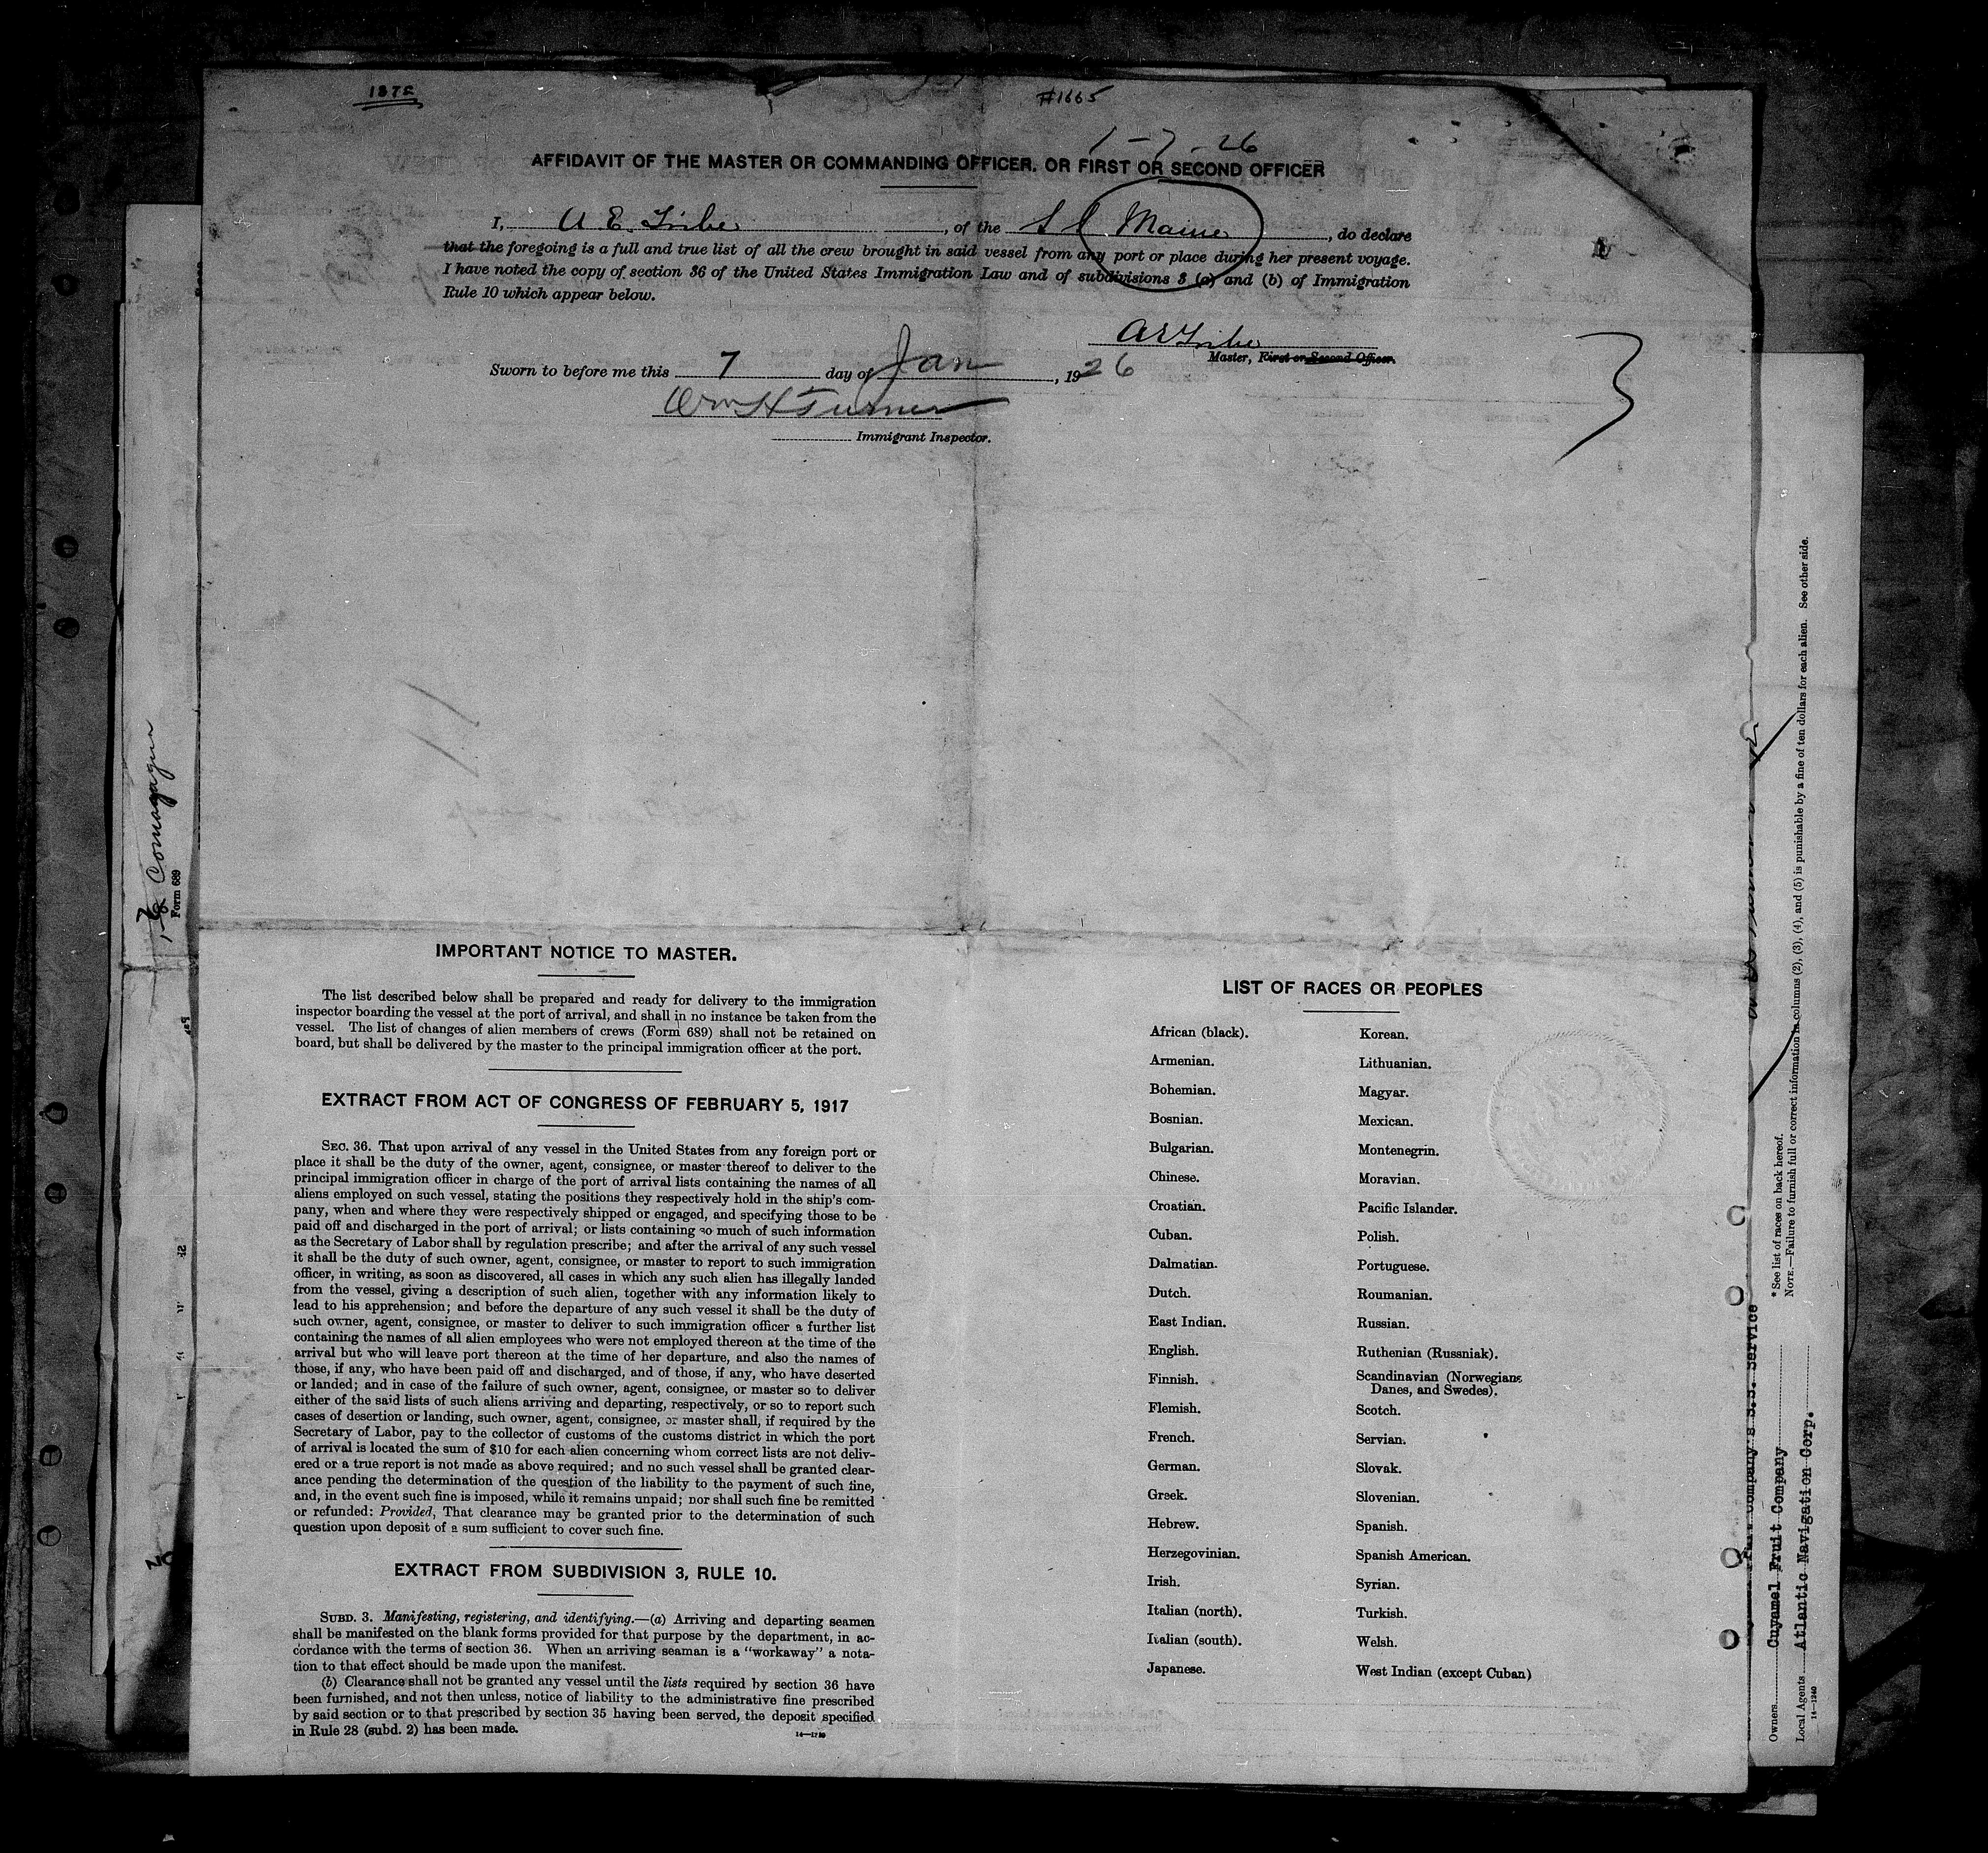 #1665
1-7-26
AFFIDAVIT OF THE MASTER OR COMMANDING OFFICER, OR FIRST OR SECOND OFFICER
I, A E Tribe, of the S S Maine, do declare
that the foregoing is a full and true list of all the crew brought in said vessel from any port or place during her present voyage.
I have noted the copy of section 36 of the United States Immigration Law and of subdivisions 3 (a) and (b) of Immigration
Rule 10 which appear below.
A E Tribe
Master, First or Second Officer.
Sworn to before me this 7 day of Jan, 1926
Wm H Turner
Immigrant Inspector.
3
IMPORTANT NOTICE TO MASTER.
The list described below shall be prepared and ready for delivery to the immigration
inspector boarding the vessel at the port of arrival, and shall in no instance be taken from the
vessel. The list of changes of alien members of crews (Form 689) shall not be retained on
board, but shall be delivered by the master to the principal immigration officer at the port.
EXTRACT FROM ACT OF CONGRESS OF FEBRUARY 5, 1917
SEC. 36. That upon arrival of any vessel in the United States from any foreign port or
place it shall be the duty of the owner, agent, consignee, or master thereof to deliver to the
principal immigration officer in charge of the port of arrival lists containing the names of all
aliens employed on such vessel, stating the positions they respectively hold in the ship's com-
pany, when and where they were respectively shipped or engaged, and specifying those to be
paid off and discharged in the port of arrival; or lists containing so much of such information
as the Secretary of Labor shall by regulation prescribe; and after the arrival of any such vessel
it shall be the duty of such owner, agent, consignee, or master to report to such immigration
officer, in writing, as soon as discovered, all cases in which any such alien has illegally landed
from the vessel, giving a description of such alien, together with any information likely to
lead to his apprehension; and before the departure of any such vessel it shall be the duty of
such owner, agent, consignee, or master to deliver to such immigration officer a further list
containing the names of all alien employees who were not employed thereon at the time of the
arrival but who will leave port thereon at the time of her departure, and also the names of
those, if any, who have been paid off and discharged, and of those, if any, who have deserted
or landed; and in case of the failure of such owner, agent, consignee, or master so to deliver
either of the said lists of such aliens arriving and departing, respectively, or so to report such
cases of desertion or landing, such owner, agent, consignee, or master shall, if required by the
Secretary of Labor, pay to the collector of customs of the customs district in which the port
of arrival is located the sum of $10 for each alien concerning whom correct lists are not deliv-
ered or a true report is not made as above required; and no such vessel shall be granted clear-
ance pending the determination of the question of the liability to the payment of such fine,
and, in the event such fine is imposed, while it remains unpaid; nor shall such fine be remitted
or refunded: Provided, That clearance may be granted prior to the determination of such
question upon deposit of a sum sufficient to cover such fine.
EXTRACT FROM SUBDIVISION 3, RULE 10.
SUBD. 3. Manifesting, registering, and identifying.—(a) Arriving and departing seamen
shall be manifested on the blank forms provided for that purpose by the department, in ac-
cordance with the terms of section 36. When an arriving seaman is a "workaway" a nota-
tion to that effect should be made upon the manifest.
(b) Clearance shall not be granted any vessel until the lists required by section 36 have
been furnished, and not then unless, notice of liability to the administrative fine prescribed
by said section or to that prescribed by section 35 having been served, the deposit specified
in Rule 28 (subd. 2) has been made.
LIST OF RACES OR PEOPLES
African (black).
Armenian.
Bohemian.
Bosnian.
Bulgarian.
Chinese.
Croatian.
Cuban.
Dalmatian.
Dutch.
East Indian.
English.
Finnish.
Flemish.
French.
German.
Greek.
Hebrew.
Herzegovinian.
Irish.
Italian (north).
Italian (south).
Japanese.
Korean.
Lithuanian.
Magyar.
Mexican.
Montenegrin.
Moravian.
Pacific Islander.
Polish.
Portuguese.
Roumanian.
Russian.
Ruthenian (Russniak).
Scandinavian (Norwegians,
Danes, and Swedes).
Scotch.
Servian.
Slovak.
Slovenian.
Spanish.
Spanish American.
Syrian.
Turkish.
Welsh.
West Indian (except Cuban)
Form 689
Company's S.S. Service
* See list of races on back hereof.
NOTE.—Failure to furnish full or correct information in columns (2), (3), (4), and (5) is punishable by a fine of ten dollars for each alien. See other side.
Owners Cuyamel Fruit Company
Local Agents Atlantic Navigation Corp.
14—1240